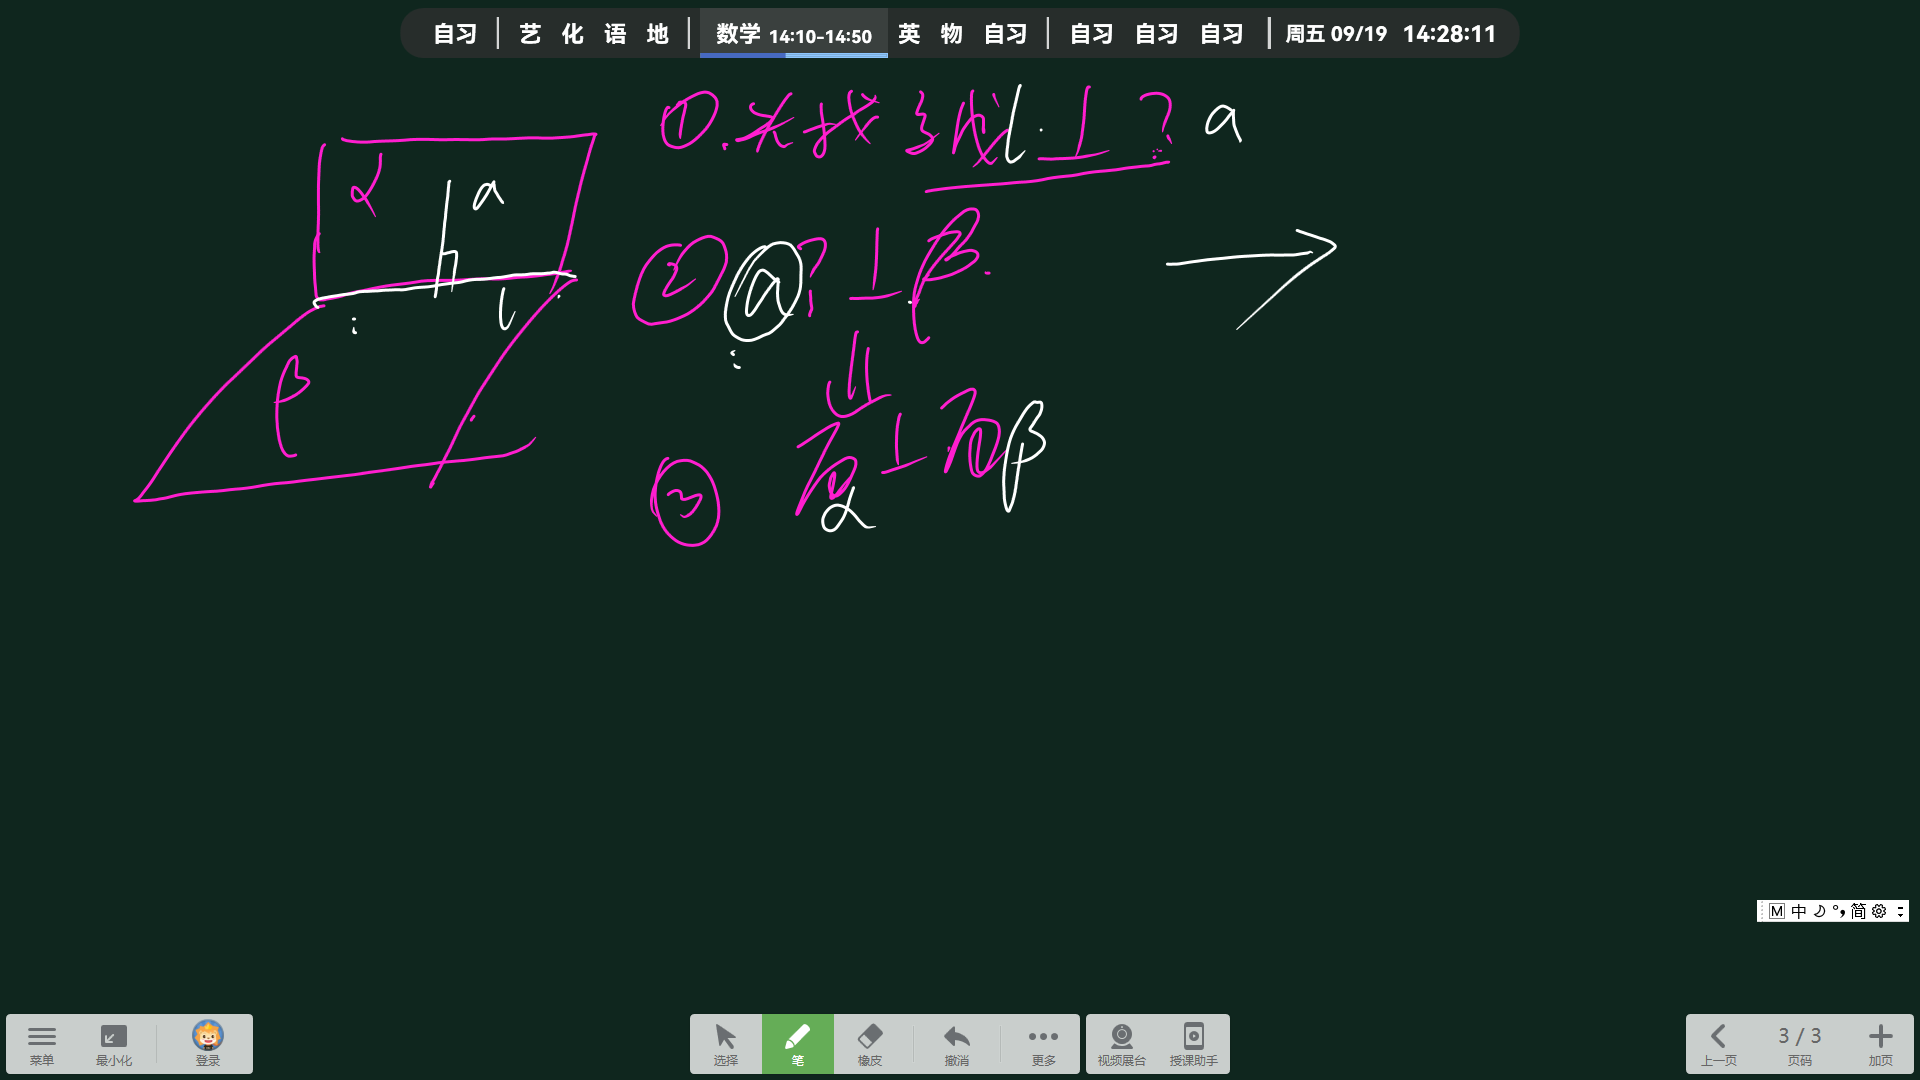 自习 艺 化 语 地 数学 14:10-14:50 英 物 自习 自习 自习 自习 周五 09/19 14:28:11
①.先找 线 l ⊥ ? a
α a
② a ? ⊥ β
l
β
面α ⊥ 面β
③
M 中 简
菜单 最小化 登录 选择 笔 橡皮 撤消 更多 视频展台 授课助手 上一页 3 / 3 页码 加页